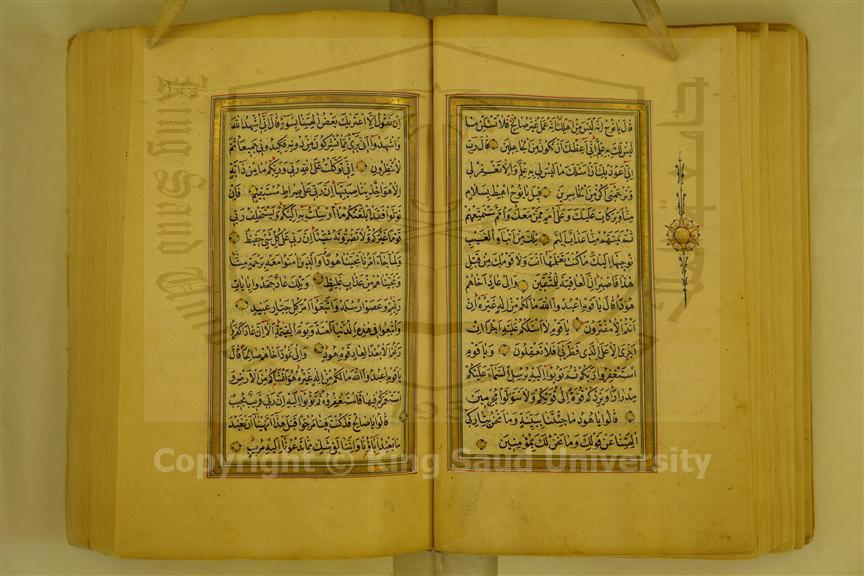 قال يا نوح انه ليس من اهلك انه عمل غير صالح فلا تسئلن ما
ليس لك به علم اني اعظك ان تكون من الجاهلين قال رب
اني اعوذ بك ان اسئلك ما ليس لي به علم والا تغفر لي
وترحمني اكن من الخاسرين قيل يا نوح اهبط بسلام
منا وبركات عليك وعلى امم ممن معك وامم سنمتعهم
ثم يمسهم منا عذاب اليم تلك من انباء الغيب
نوحيها اليك ما كنت تعلمها انت ولا قومك من قبل
هذا فاصبر ان العاقبة للمتقين والى عاد اخاهم
هودا قال يا قوم اعبدوا الله ما لكم من اله غيره ان
انتم الا مفترون يا قوم لا اسئلكم عليه اجرا ان
اجري الا على الذي فطرني افلا تعقلون ويا قوم
استغفروا ربكم ثم توبوا اليه يرسل السماء عليكم
مدرارا ويزدكم قوة الى قوتكم ولا تتولوا مجرمين
قالوا يا هود ما جئتنا ببينة وما نحن بتاركي
الهتنا عن قولك وما نحن لك بمؤمنين
ان نقول الا اعتريك بعض الهتنا بسوء قال اني اشهد الله
واشهدوا اني بريء مما تشركون من دونه فكيدوني جميعا ثم
لا تنظرون اني توكلت على الله ربي وربكم ما من دابة
الا هو اخذ بناصيتها ان ربي على صراط مستقيم فان
تولوا فقد ابلغتكم ما ارسلت به اليكم ويستخلف ربي
قوما غيركم ولا تضرونه شيئا ان ربي على كل شيء حفيظ
ولما جاء امرنا نجينا هودا والذين امنوا معه برحمة منا
ونجيناهم من عذاب غليظ وتلك عاد جحدوا بايات
ربهم وعصوا رسله واتبعوا امر كل جبار عنيد
واتبعوا في هذه الدنيا لعنة ويوم القيمة الا ان عادا كفروا
ربهم الا بعدا لعاد قوم هود والى ثمود اخاهم صالحا قال
يا قوم اعبدوا الله ما لكم من اله غيره هو انشاكم من الارض و
استعمركم فيها فاستغفروه ثم توبوا اليه ان ربي قريب مجيب
قالوا يا صالح قد كنت فينا مرجوا قبل هذا اتنهينا ان نعبد
ما يعبد اباؤنا واننا لفي شك مما تدعونا اليه مريب
King Saud University
Copyright © King Saud University